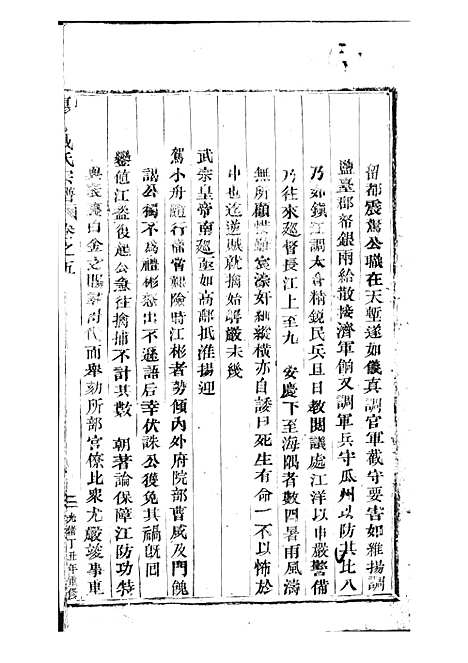 留都震駕公職在天塹遂如儀真調官軍截守要害如維揚調
鹽臺郡帑銀兩給散接濟軍餉又調軍兵守瓜州以防其北
乃如鎮江調太倉精銳民兵且日教閱議處江洋以申嚴警備
乃往來廵督長江上至九 安慶下至海隅者數四暑雨風濤
無所顧 宸濠奸 縱橫亦自諉曰死生有命一不以怖於
中也迄逆賊就擒始 嚴未幾
武宗皇帝南廵並如高郵抵淮揚迎
駕小舟隨行備 艱險時江彬者勢傾內外府院部曹咸及門
謁公獨不為禮彬 出不遜語后幸伏誅公獲免其禍旣回
鑾値江盜復起公急往擒捕不計其數 朝著論保障江防功特
與表裏白金之賜 代而舉劾所部官僚比衆尤嚴竣事
氏宗譜 卷之五
光緒丁丑年重修